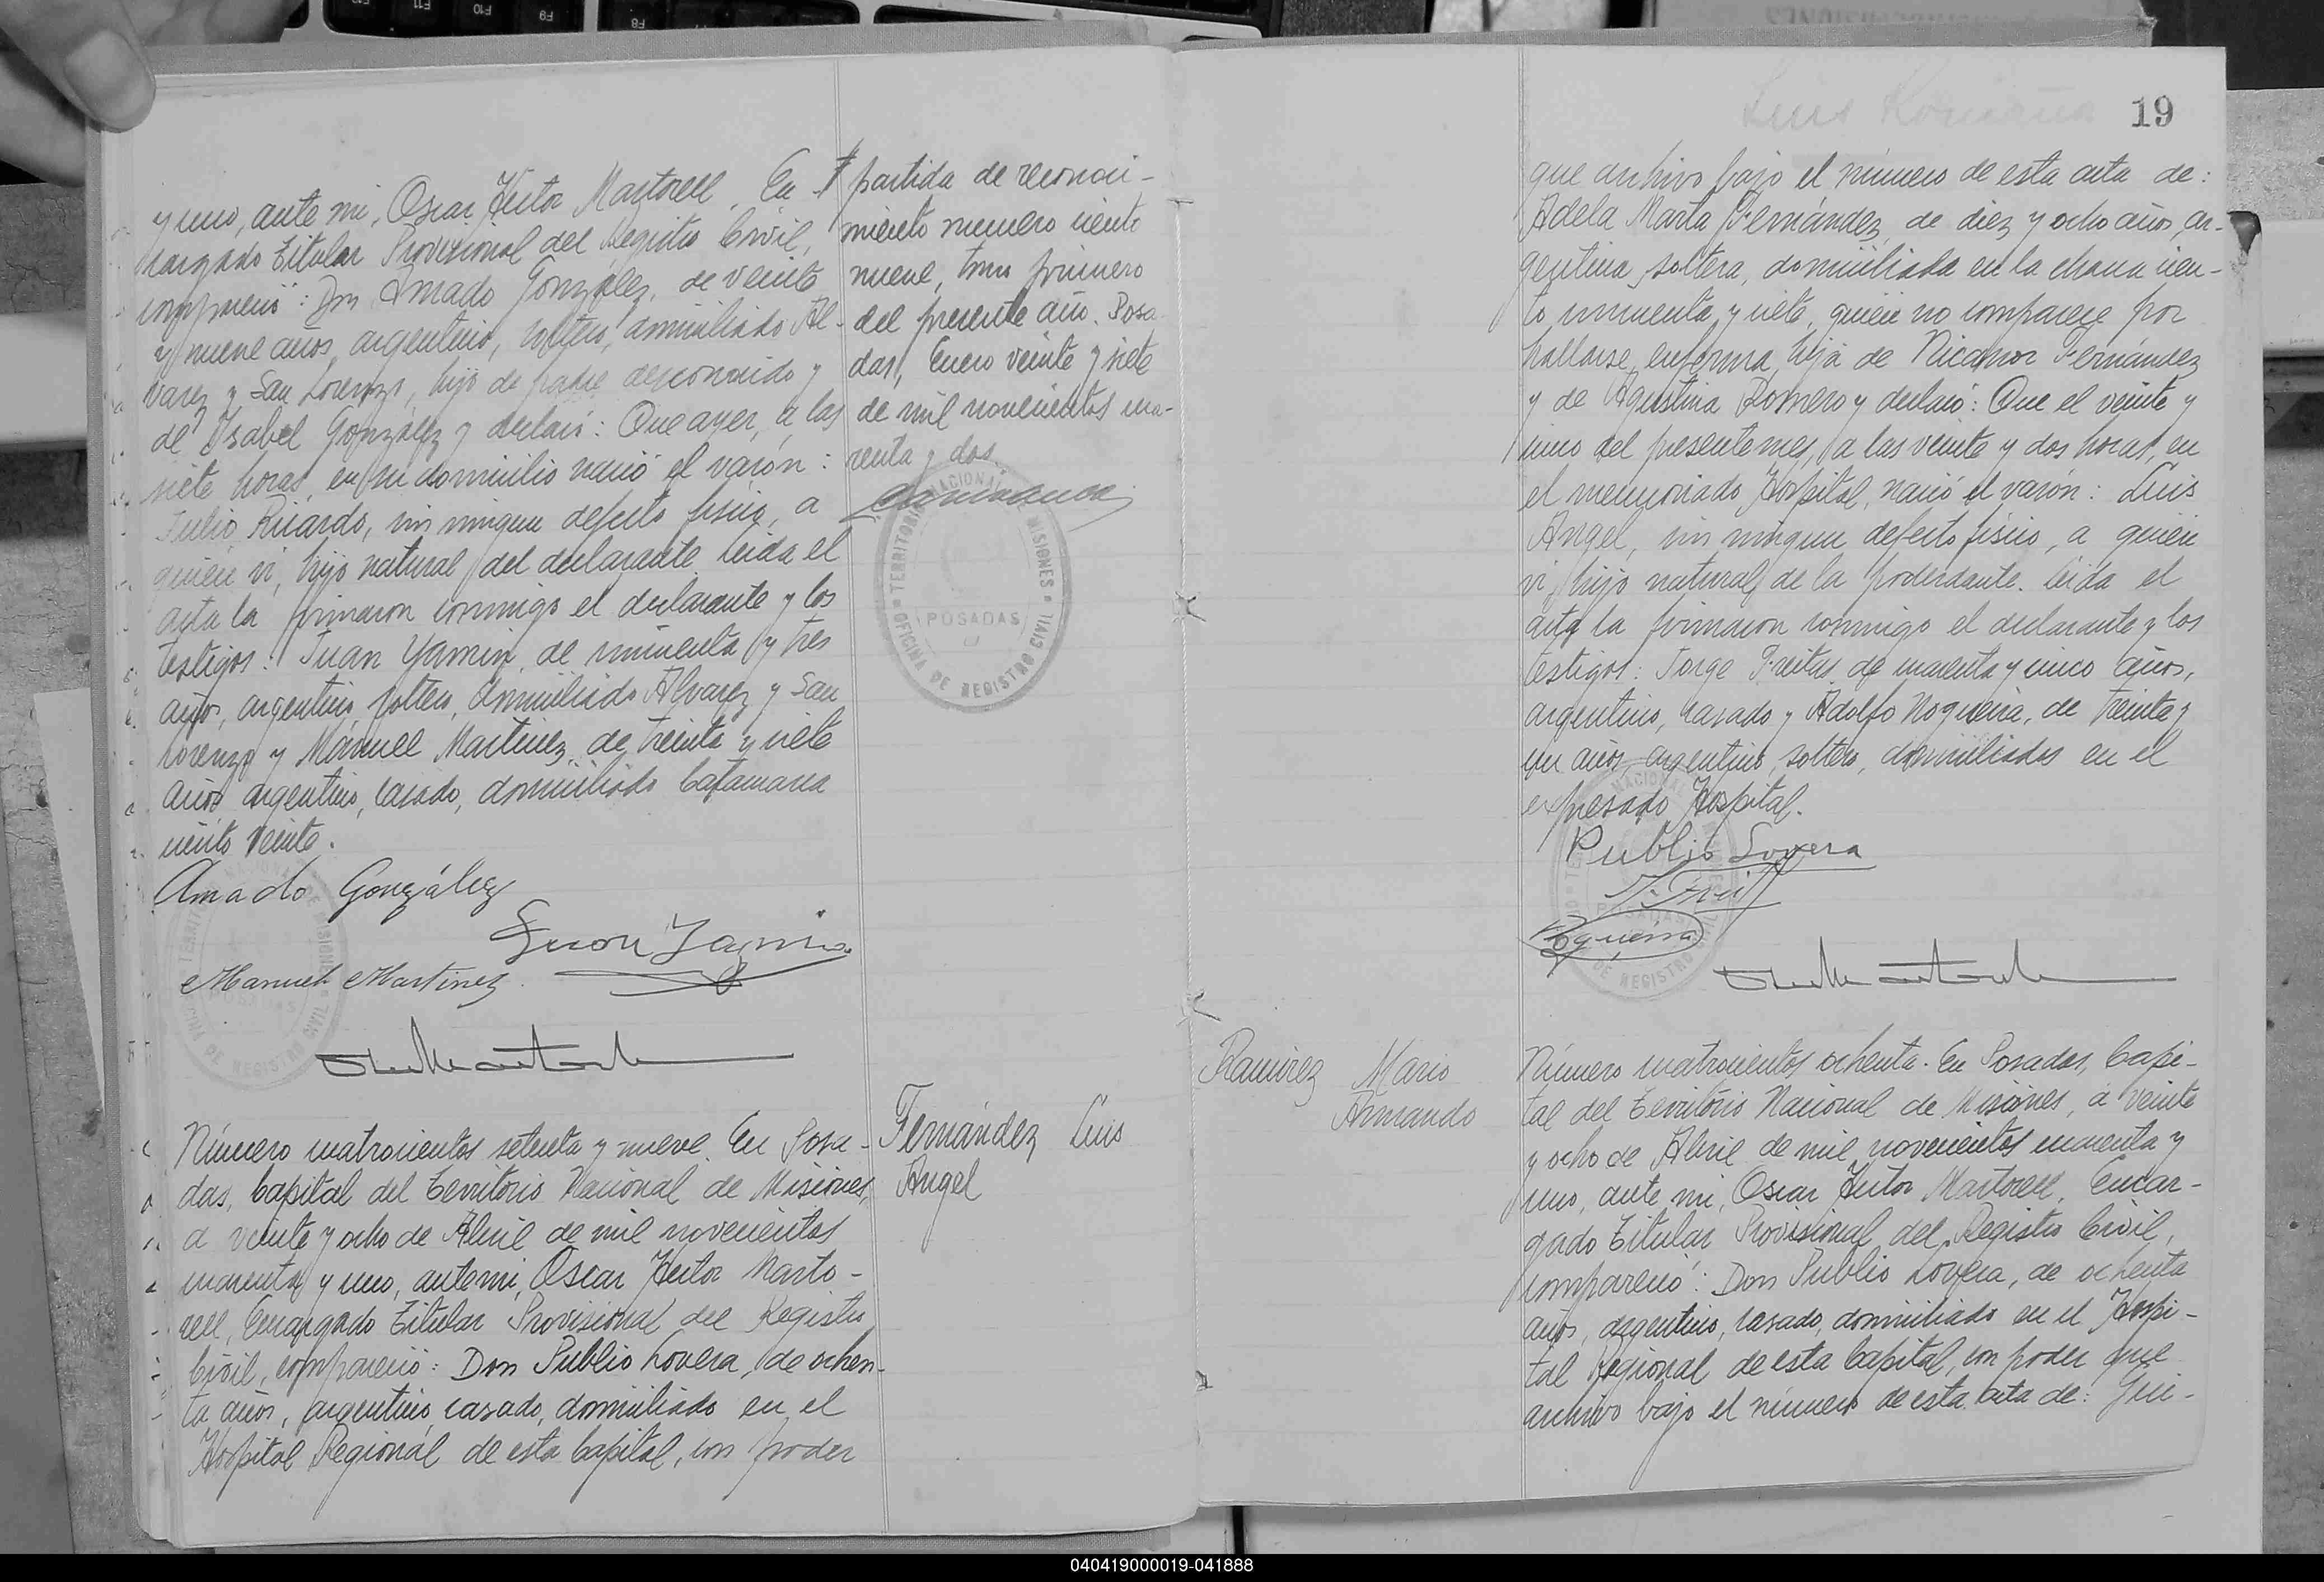 y uno, ante mi, Oscar Hector Martorell, En
cargado Titular Provisional del Registro Civil,
compareció: Don Amado González, de veinte
y nueve años, argentino, soltero, domiciliado Al-
varez y San Lorenzo, hijo de padre desconocido y
de Isabel González y declaró: Que ayer, a las
siete horas, en su domicilio nació el varón:
Julio Ricardo, sin ningun defecto físico, a
quién vi, hijo natural del declarante. Leída el
acta la firmaron conmigo el declarante y los
testigos: Juan Yamin, de cincuenta y tres
años, argentino, soltero, domiciliado Alvarez y San
Lorenzo y Manuel Martinez, de treinta y siete
años, argentino, casado, domiciliado Catamarca
ciento veinte.
Amado González
Juan Yamin
Manuel Martinez
partida de reconoci-
miento numero ciento
nueve, tomo primero
del presente año. Posa
das, Enero veinte y siete
de mil novecientos cua-
renta y dos
TERRITORIO NACIONAL DE MISIONES
POSADAS
OFICINA DE REGISTRO CIVIL
Número cuatrocientos setenta y nueve. En Posa-
das, Capital del Territorio Nacional de Misiones,
a veinte y ocho de Abril de mil novecientos
cuarenta y uno, ante mi, Oscar Hector Marto-
rell, Encargado Titular Provisional del Registro
Civil, compareció: Don Publio Lovera, de ochen-
ta años, argentino, casado, domiciliado en el
Hospital Regional de esta Capital, con poder
Fernández Luis
Angel
19
que archivo bajo el número de esta acta de:
Adela Marta Fernández, de diez y ocho años, ar-
gentina, soltera, domiciliada en la chacra cien-
to cincuenta y siete, quién no comparece por
hallarse enferma, hija de Nicanor Fernández
y de Agustina Romero y declaró: Que el veinte y
uno del presente mes, a las veinte y dos horas, en
el mencionado Hospital, nació el varón: Luis
Angel, sin ningun defecto físico, a quién
vi, hijo natural de la poderdante. Leída el
acta la firmaron conmigo el declarante y los
testigos: Jorge Freitas, de cuarenta y cinco años,
argentino, casado y Adolfo Nogueira, de treinta y
un años, argentino, soltero, domiciliados en el
expresado Hospital.
Publio Lovera
Nogueira
Ramirez Mario
Armando
Número cuatrocientos ochenta. En Posadas, Capi-
tal del Territorio Nacional de Misiones, a veinte
y ocho de Abril de mil novecientos cuarenta y
uno, ante mi, Oscar Hector Martorell, Encar-
gado Titular Provisional del Registro Civil,
compareció: Don Publio Lovera, de ochenta
años, argentino, casado, domiciliado en el Hospi-
tal Regional de esta Capital, con poder que
archivo bajo el número de esta acta de: Gui-
040419000019-041888